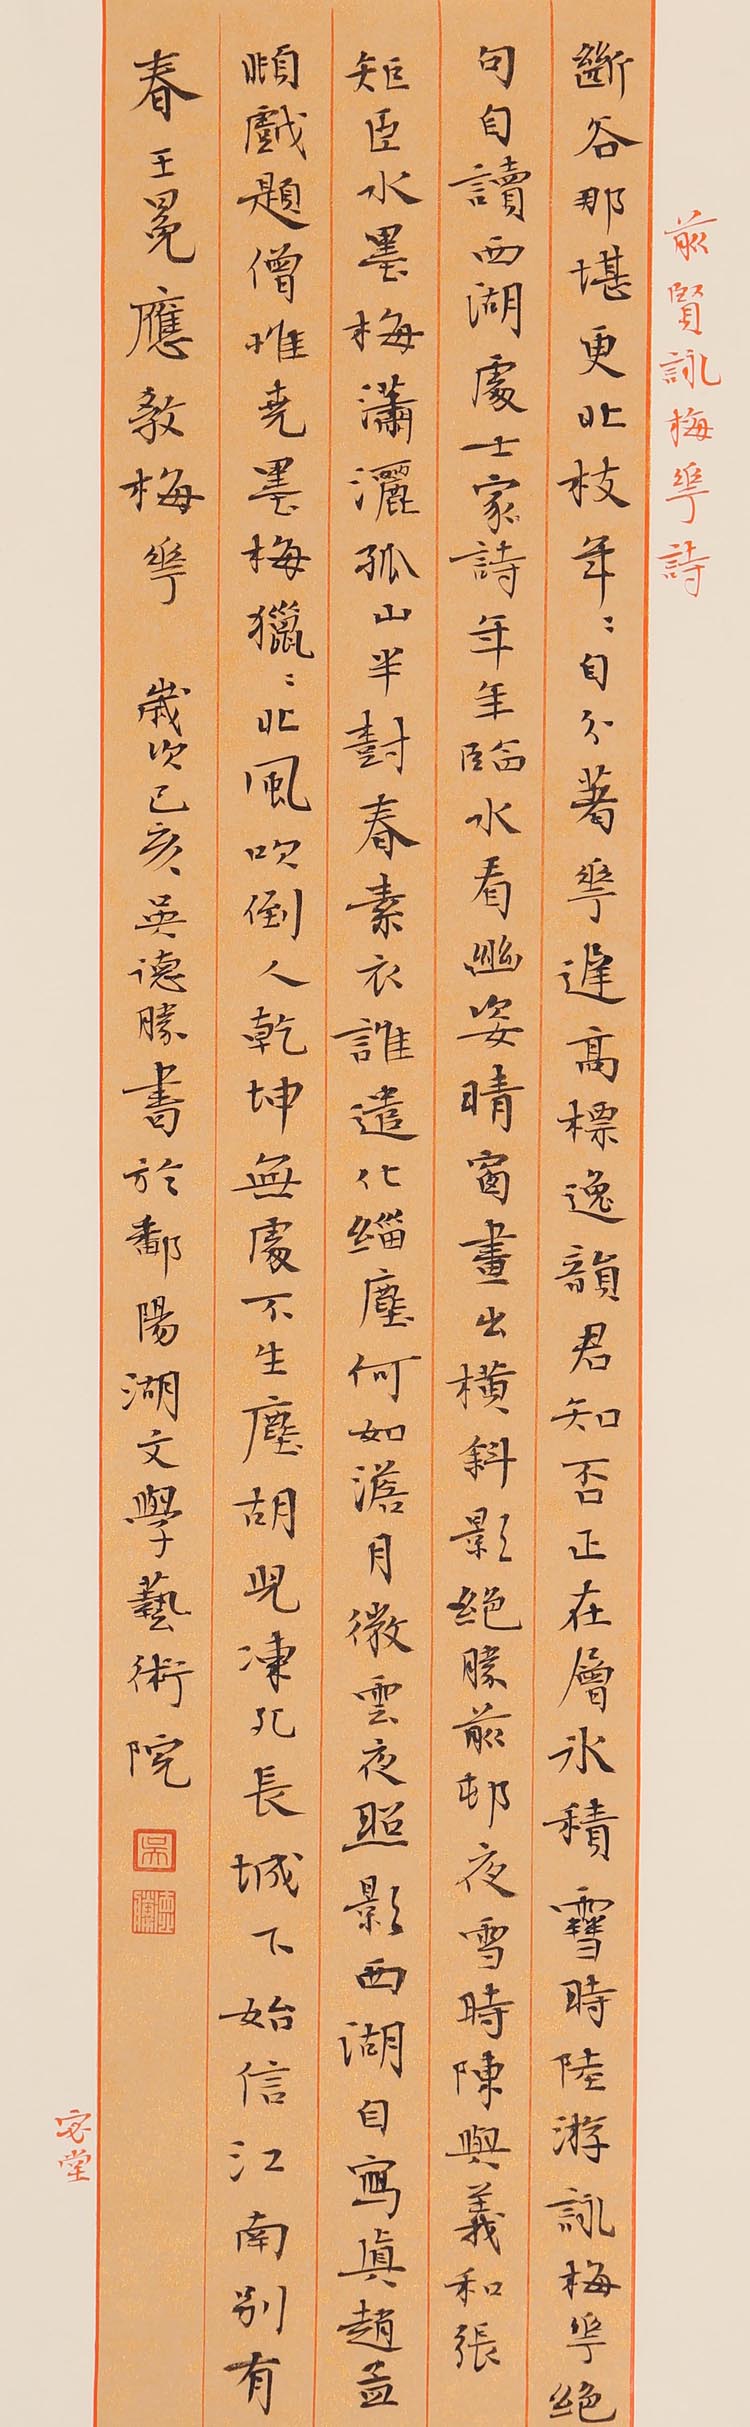 前賢詠梅華詩
斷谷那堪更北枝年〻自分著華遲高標逸韻君知否正在層冰積雪時陸游詠梅華絕
句自讀西湖處士家詩年年臨水看幽姿晴窗畫出橫斜影絕勝前邨夜雪時陳與義和張
矩臣水墨梅瀟灑孤山半封春素衣誰遣化緇塵何如澹月微雲夜照影西湖自寫真趙孟
頫戲題僧惟堯墨梅獵〻北風吹倒人乾坤無處不生塵胡兒凍死長城下始信江南別有
春王冕應教梅華 歲次己亥吳德勝書於鄱陽湖文學藝術院
吳
德勝
宓堂